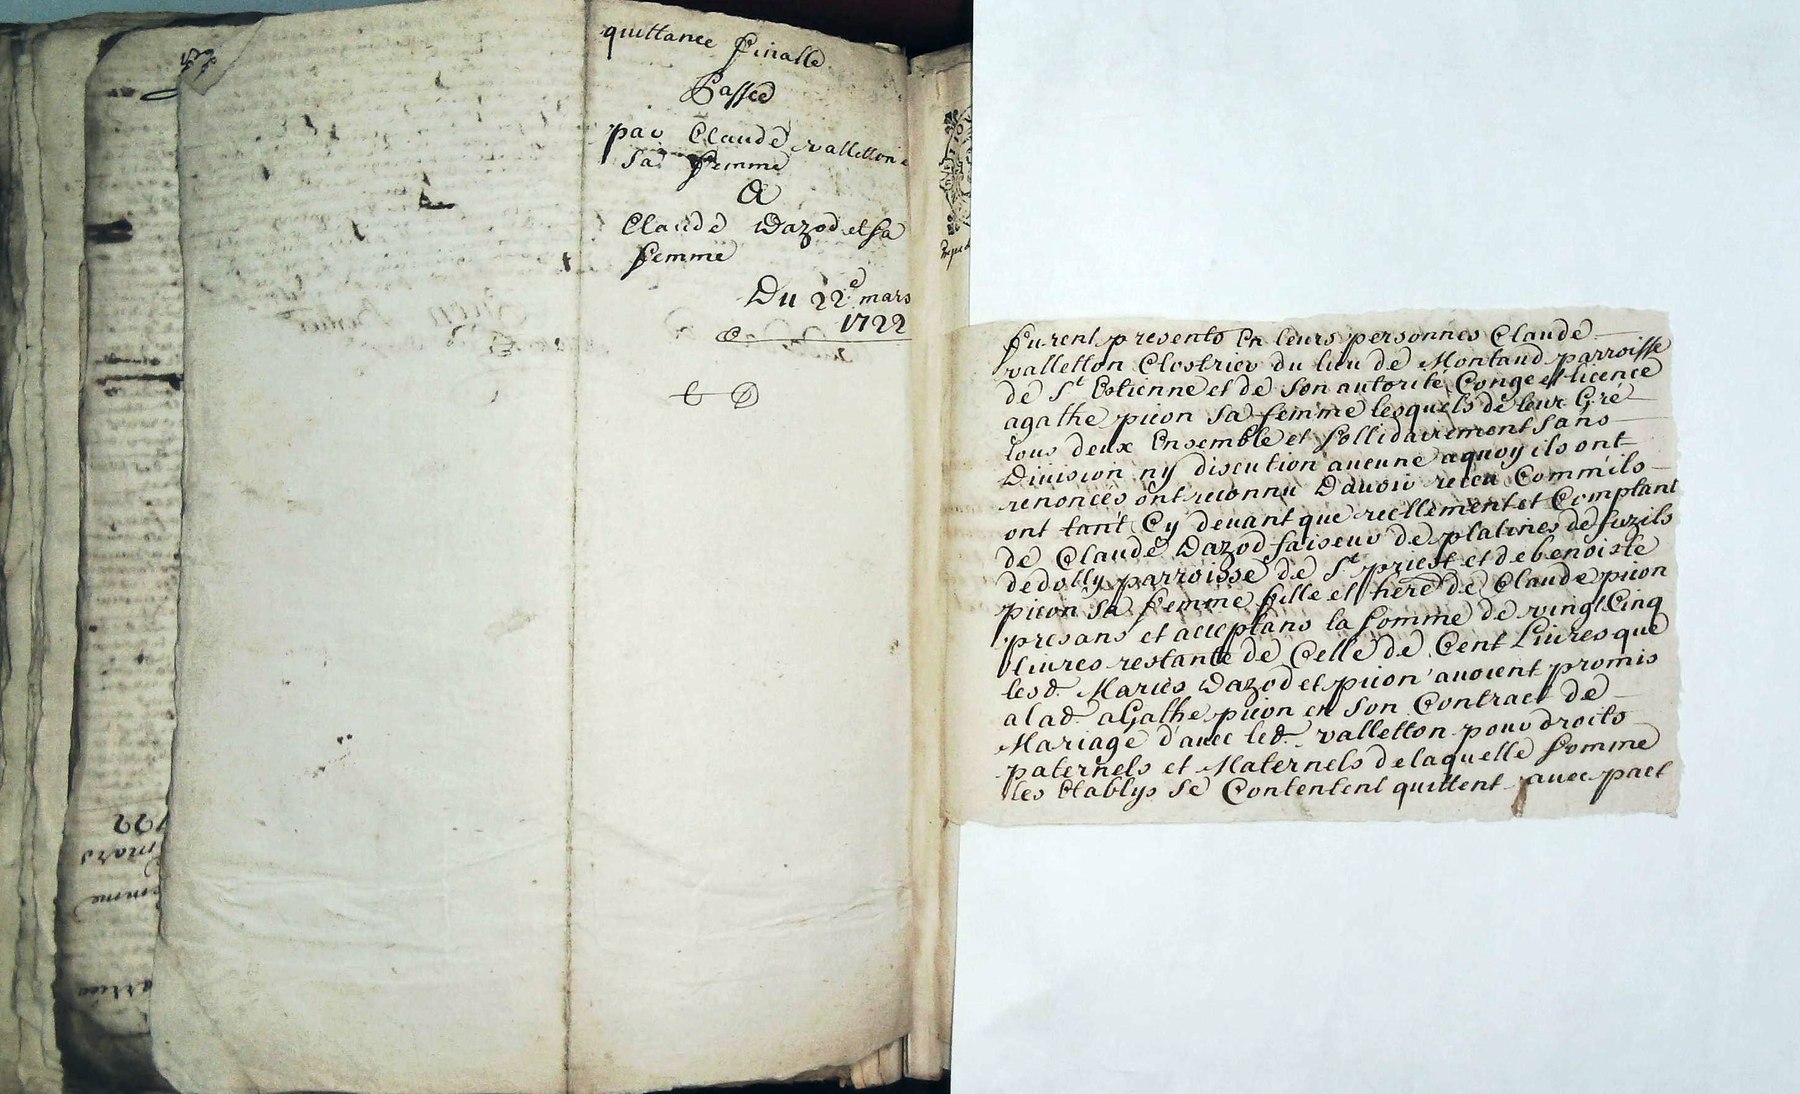 quittance finalle
Passeé
par Claude valletton e
sa femme
A
Claude Dazod et sa
femme
Du 22e mars
1722
furent presents En leurs personnes Claude
valletton Clostrier du lieu de Montaud parroisse
de St Estienne et de son autorité Conge et licence
agathe picon sa femme lesquels de leur Gré
tous deux Ensemble et sollidairement sans
Division ny discution aucune aquoy ils ont
renoncés ont reconnu Davoir receu Comm'ils
ont tant Cy devant que reellement et Comptant
de Claude Dazod faiseur de platines de fuzils
de dolly parroisse de St priest et de benoiste
picon sa femme fille et here de Claude picon
presans et acceptans la somme de vingt Cinq
livres restante de Celle de Cent Livres que
les d. Mariès Dazod et picon avoient promis
a lad. aGathe picon en son Contract de
Mariage d'avec led. valletton pour droits
paternels et Maternels de laquelle somme
les Etablys se Contentent quittent avec pact
1722
mars
emme